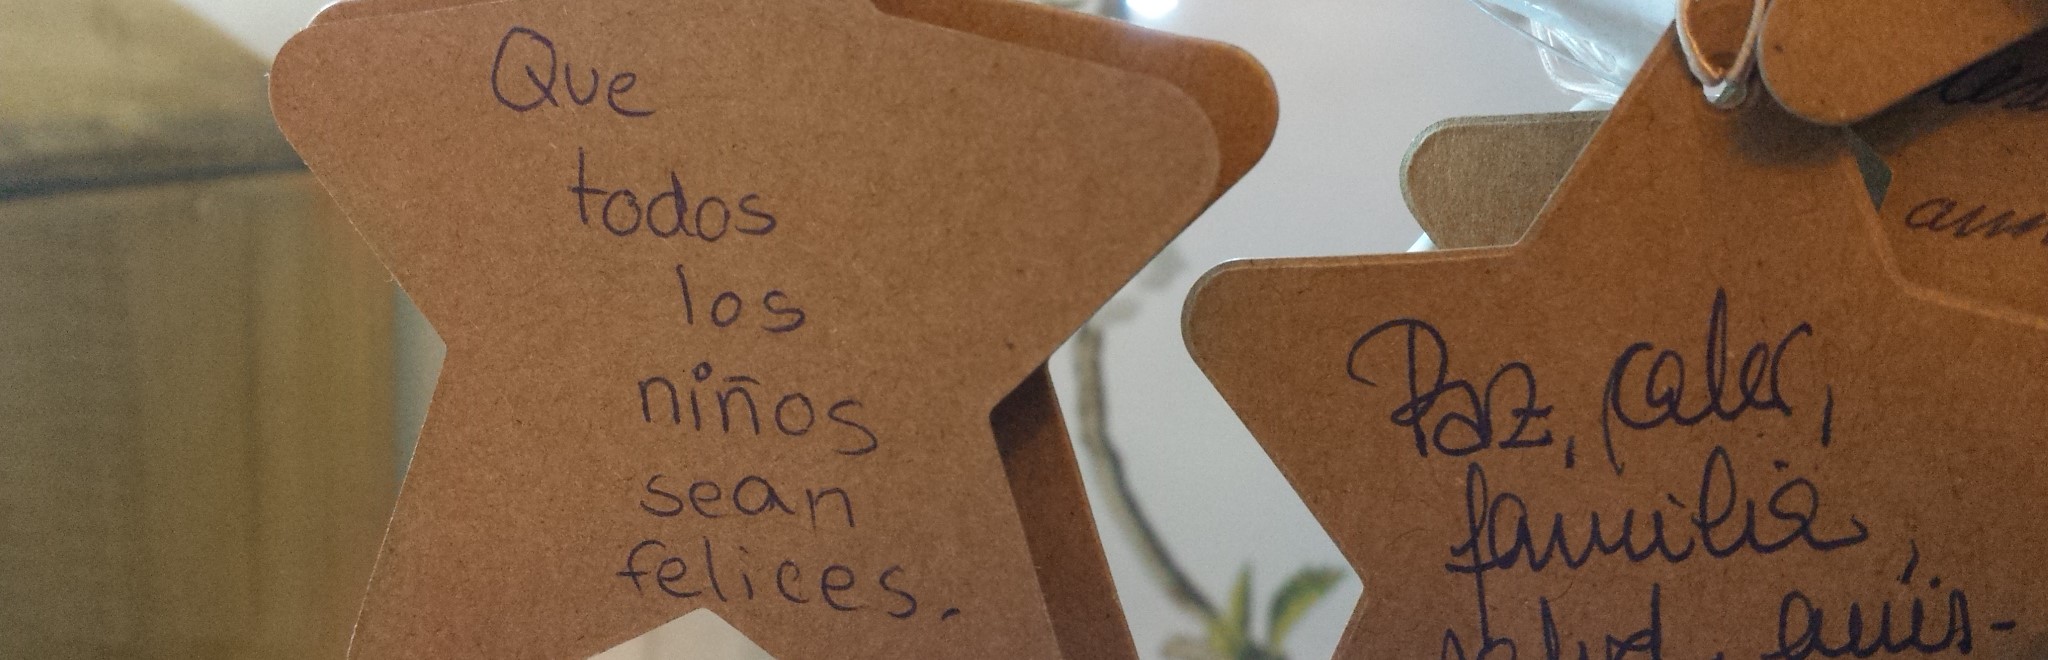 Que
todos
los
niños
sean
felices.
Paz, calor,
familia,
salud, amis-